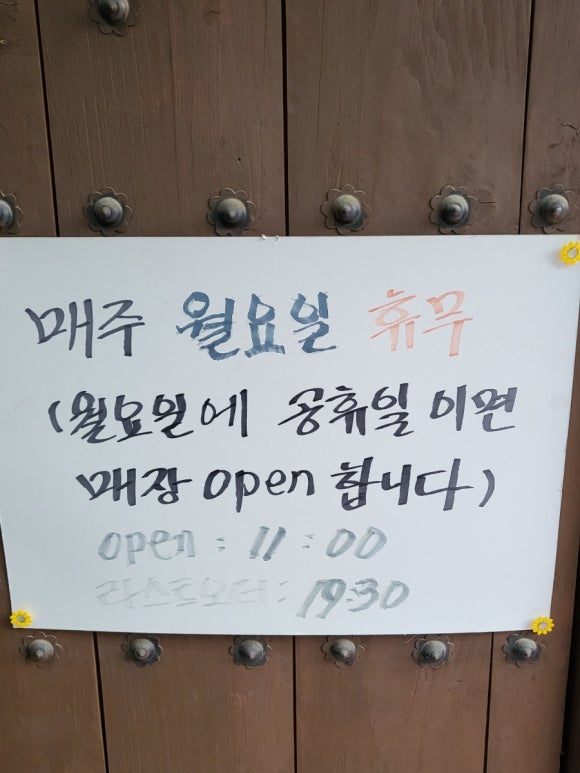 매주 월요일 휴무
(월요일에 공휴일 이면
매장 open 합니다)
open : 11 : 00
라스트오더 : 19:30